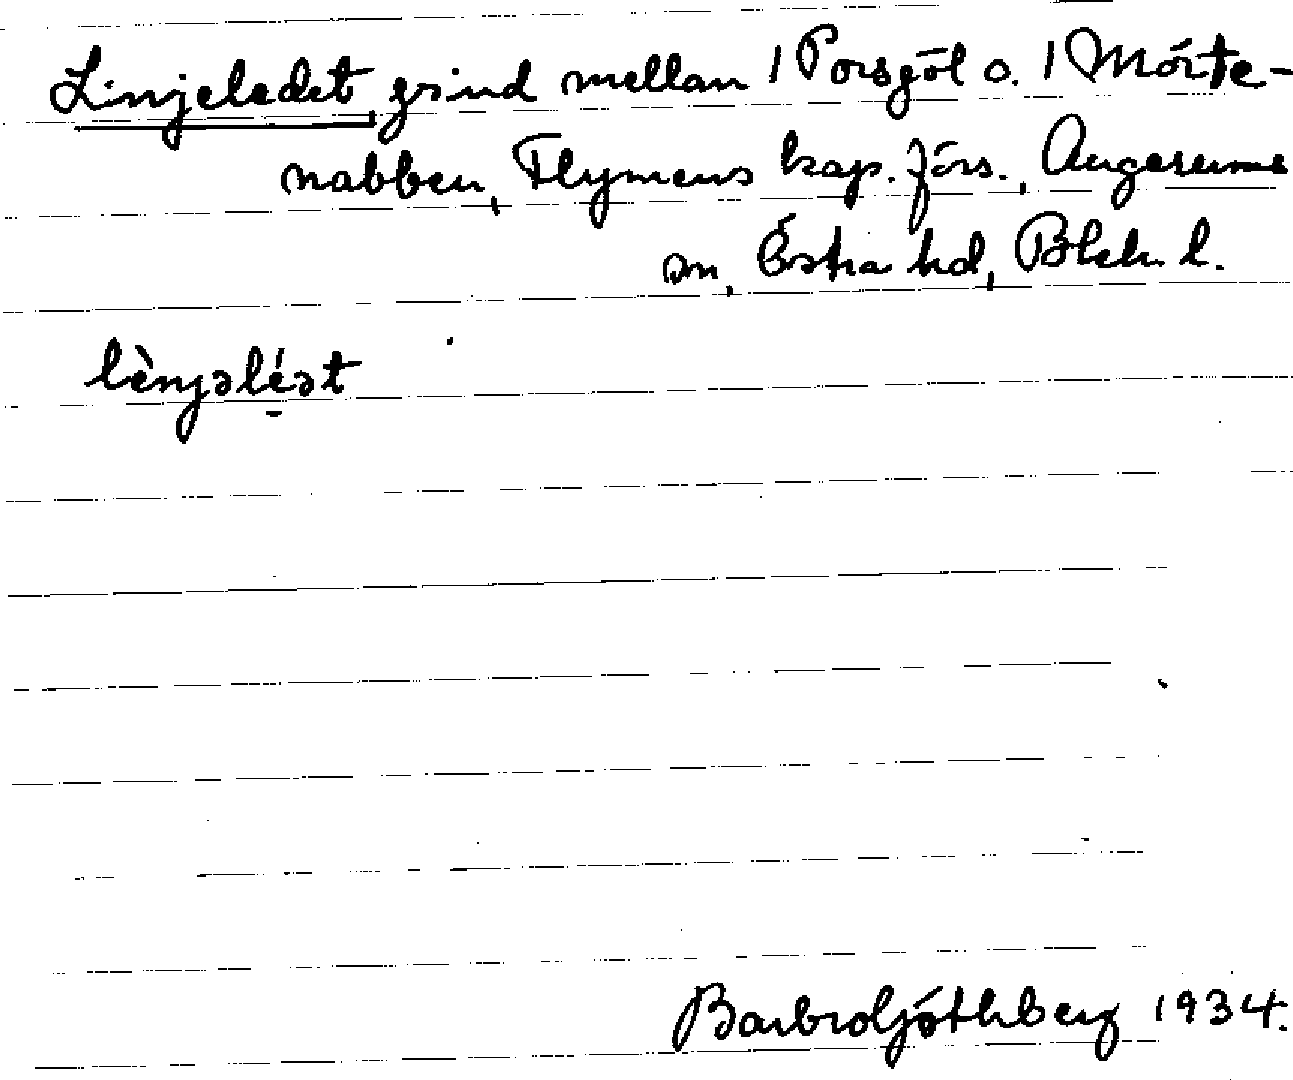 Linjeledet, grind mellan 1 Porsgöl o. 1 Mörte-
nabben, Flymens kap. förs., Augerums
sn, Östra hd, Blek. l.
lènjəléət
Barbro Götlberg 1934.